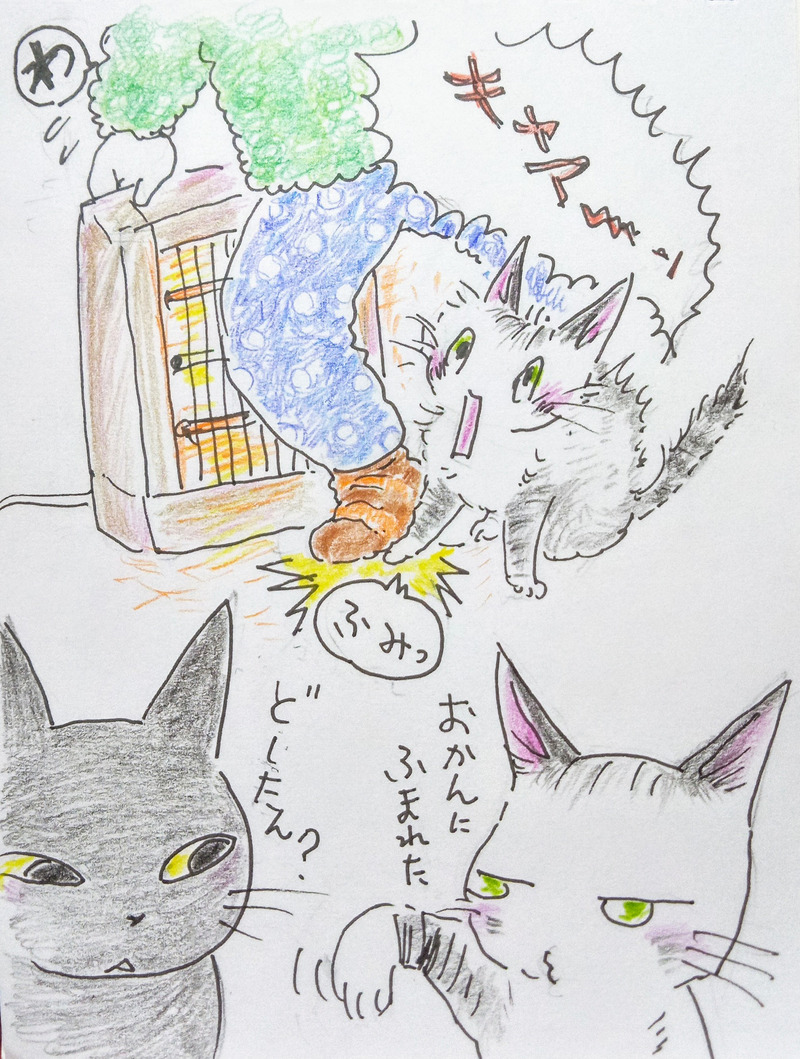 キャアーッ
わ
ふみっ
おかんに
ふまれた
どしたえ?